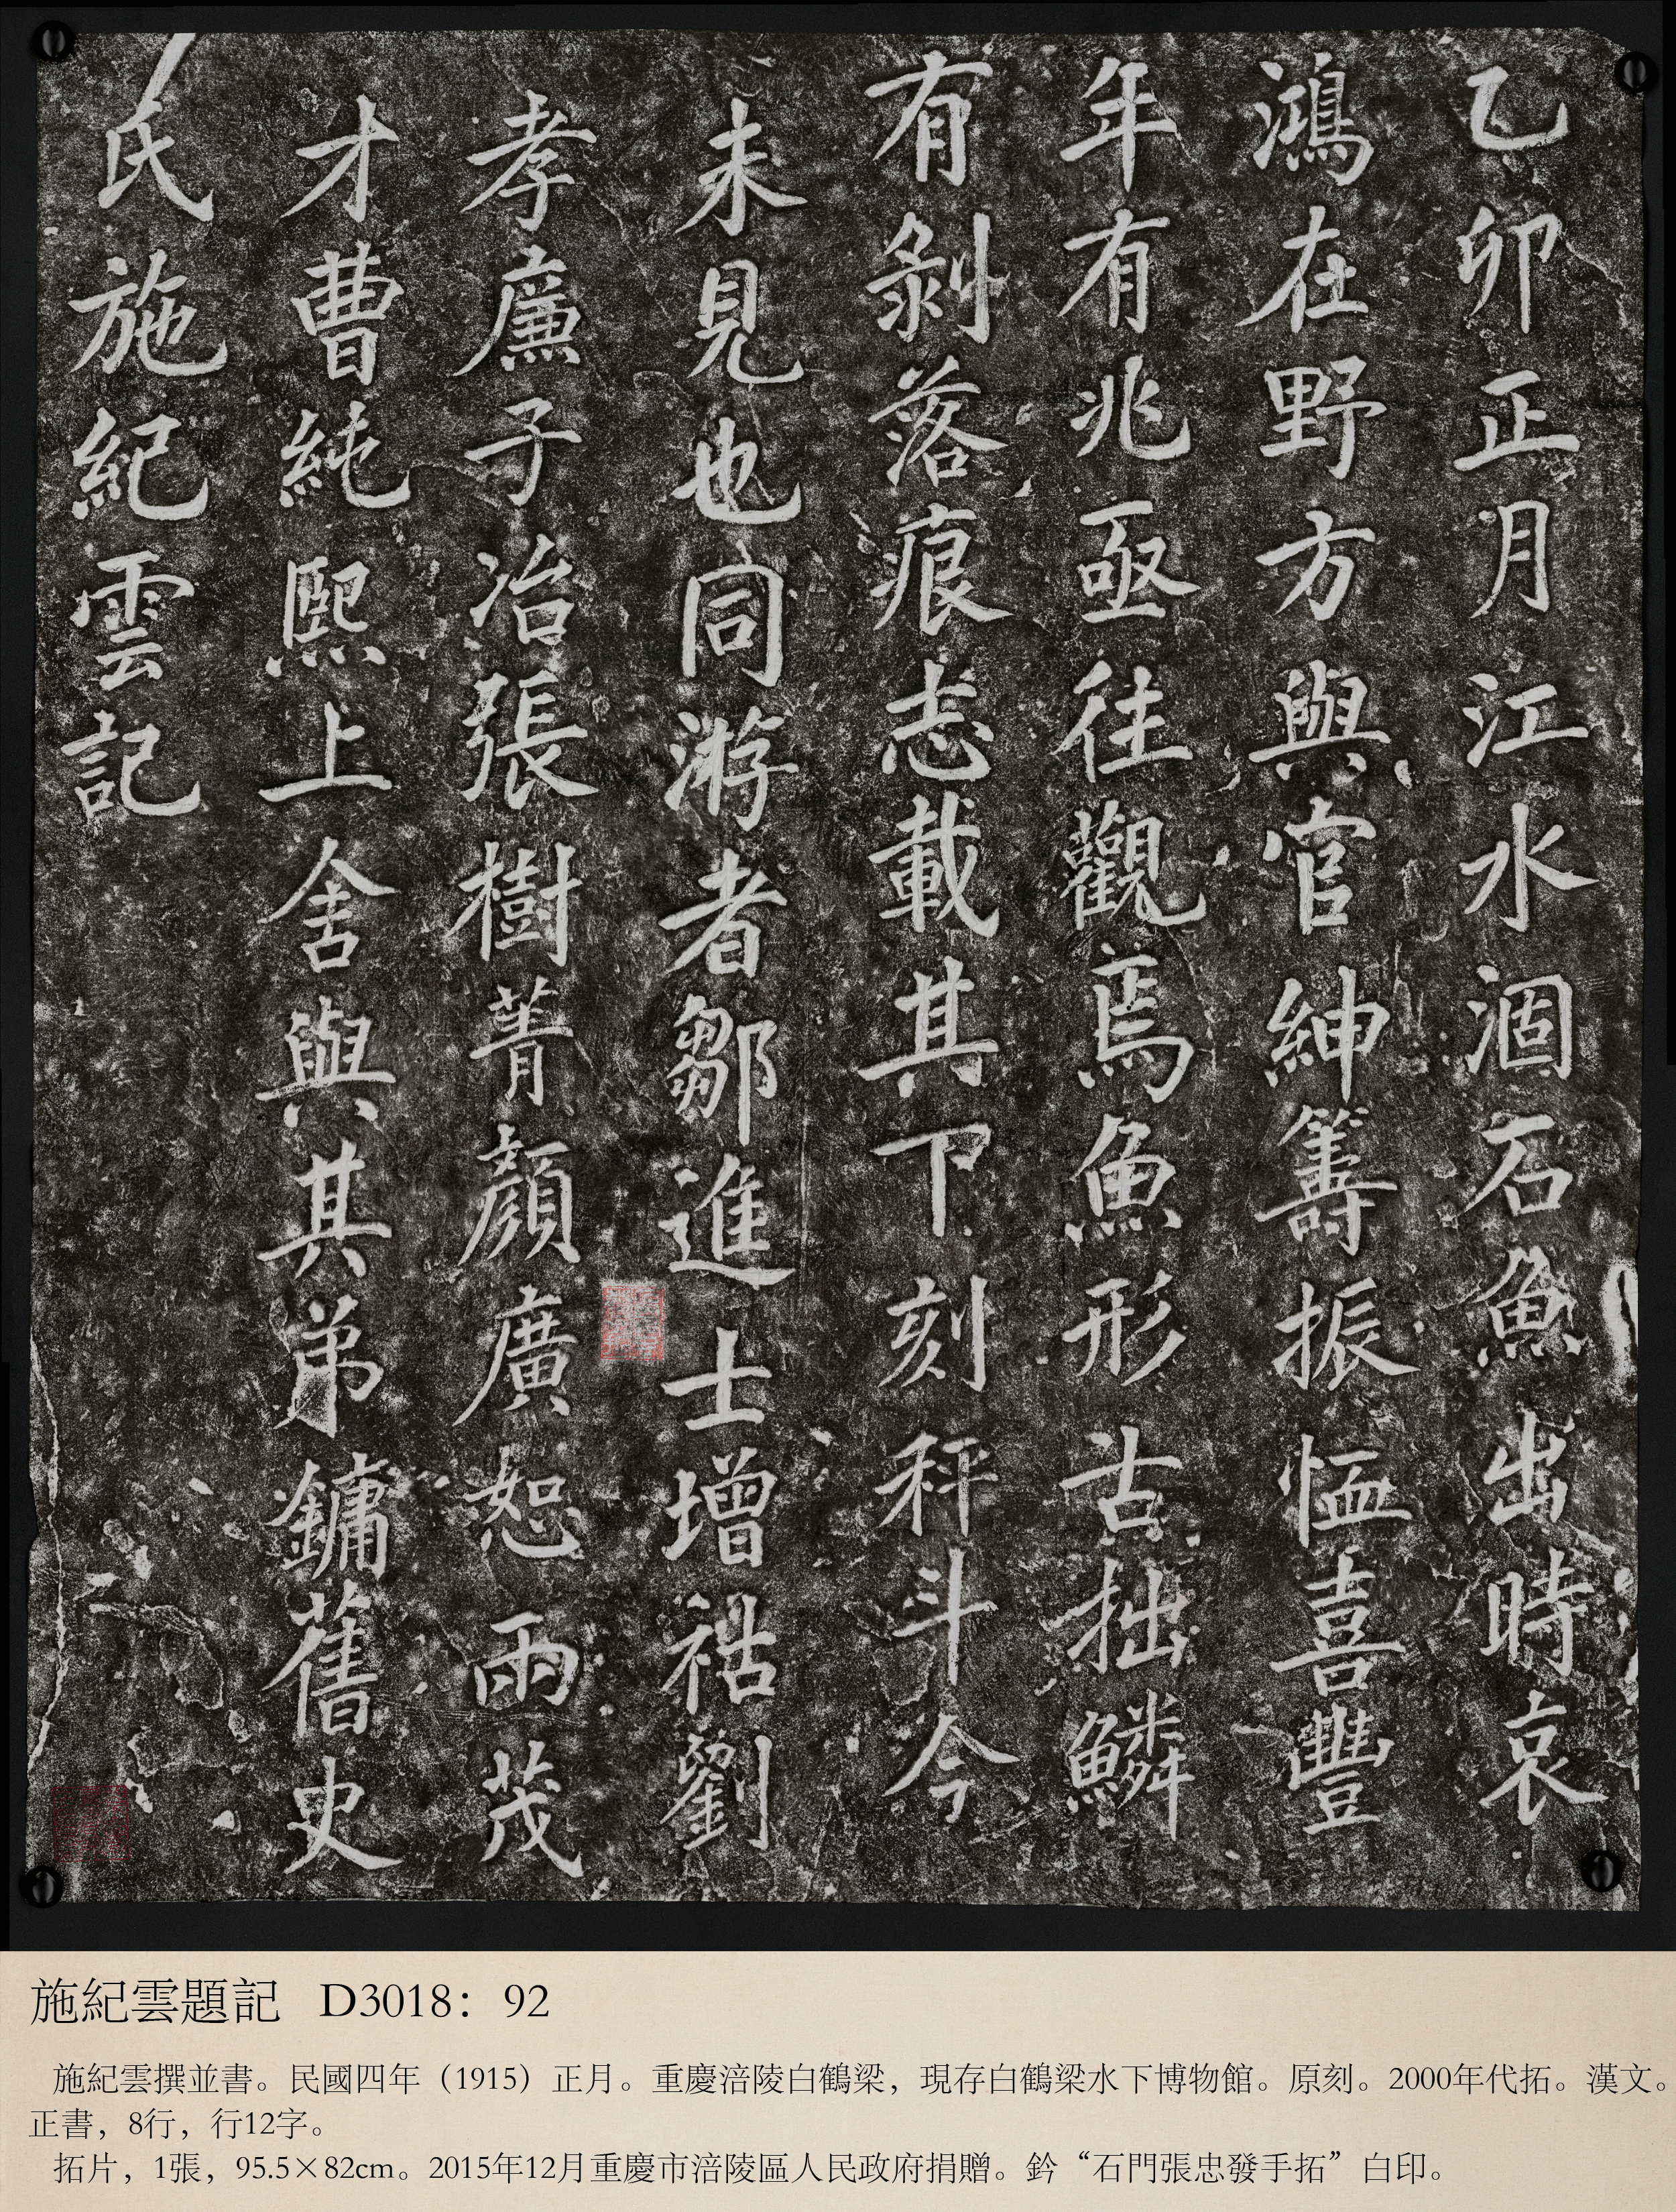 乙卯正月江水涸石魚出時哀
鴻在野方與官紳籌振恤喜豐
年有兆亟往觀焉魚形古拙鱗
有剝落痕志載其下刻秤斗今
未見也同游者鄒進士增祜劉
孝廉子冶張樹菁顏廣恕兩茂
才曹純熙上舍與其弟鏞舊史
氏施紀雲記
施紀雲題記 D3018：92
施紀雲撰並書。民國四年（1915）正月。重慶涪陵白鶴梁，現存白鶴梁水下博物館。原刻。2000年代拓。漢文。
正書，8行，行12字。
拓片，1張，95.5×82cm。2015年12月重慶市涪陵區人民政府捐贈。鈐“石門張忠發手拓”白印。